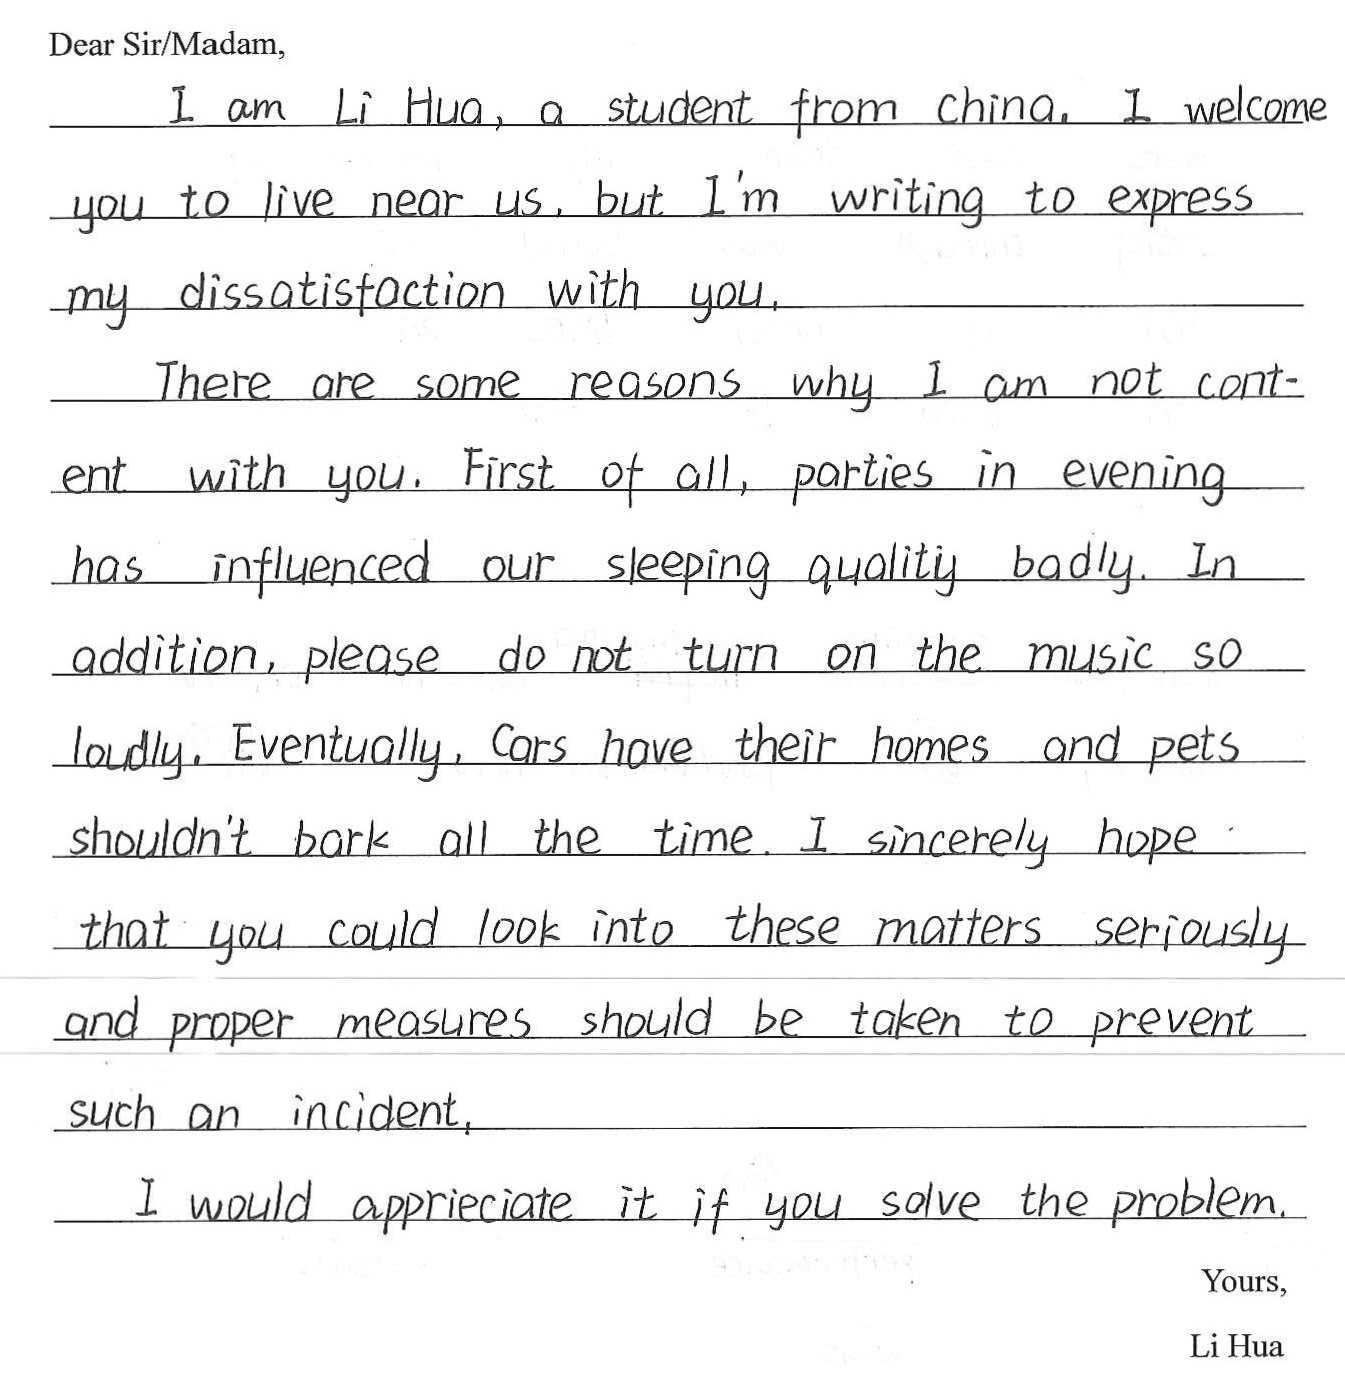 Dear Sir/Madam,
I am Li Hua, a student from china. I welcome
you to live near us, but I'm writing to express
my dissatisfaction with you.
There are some reasons why I am not cont-
ent with you. First of all, parties in evening
has influenced our sleeping qualitiy badly. In
addition, please do not turn on the music so
loudly. Eventually, Cars have their homes and pets
shouldn't bark all the time. I sincerely hope
that you could look into these matters seriously
and proper measures should be taken to prevent
such an incident,
I would apprieciate it if you solve the problem.
Yours,
Li Hua